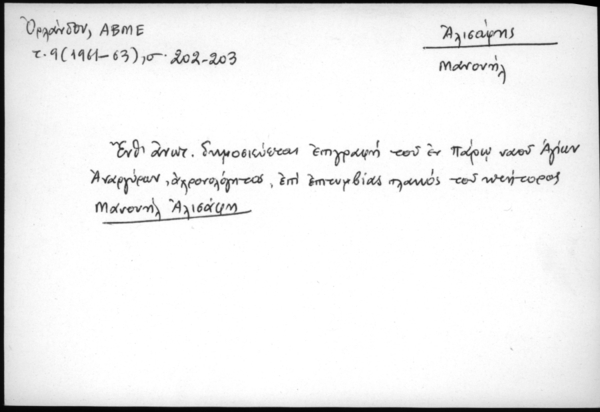 Ὀρλάνδου, ΑΒΜΕ
τ. 9 (1961-63), σ. 202-203
Ἀλισάφης
Μανουήλ
Ἔνθ' ἀνωτ. δημοσιεύεται ἐπιγραφή τοῦ ἐν Πάρῳ ναοῦ Ἁγίων
Ἀναργύρων, ἀχρονολόγητος, ἐπί ἐπιτυμβίας πλακός τοῦ κτήτορος
Μανουήλ Ἀλισάφη